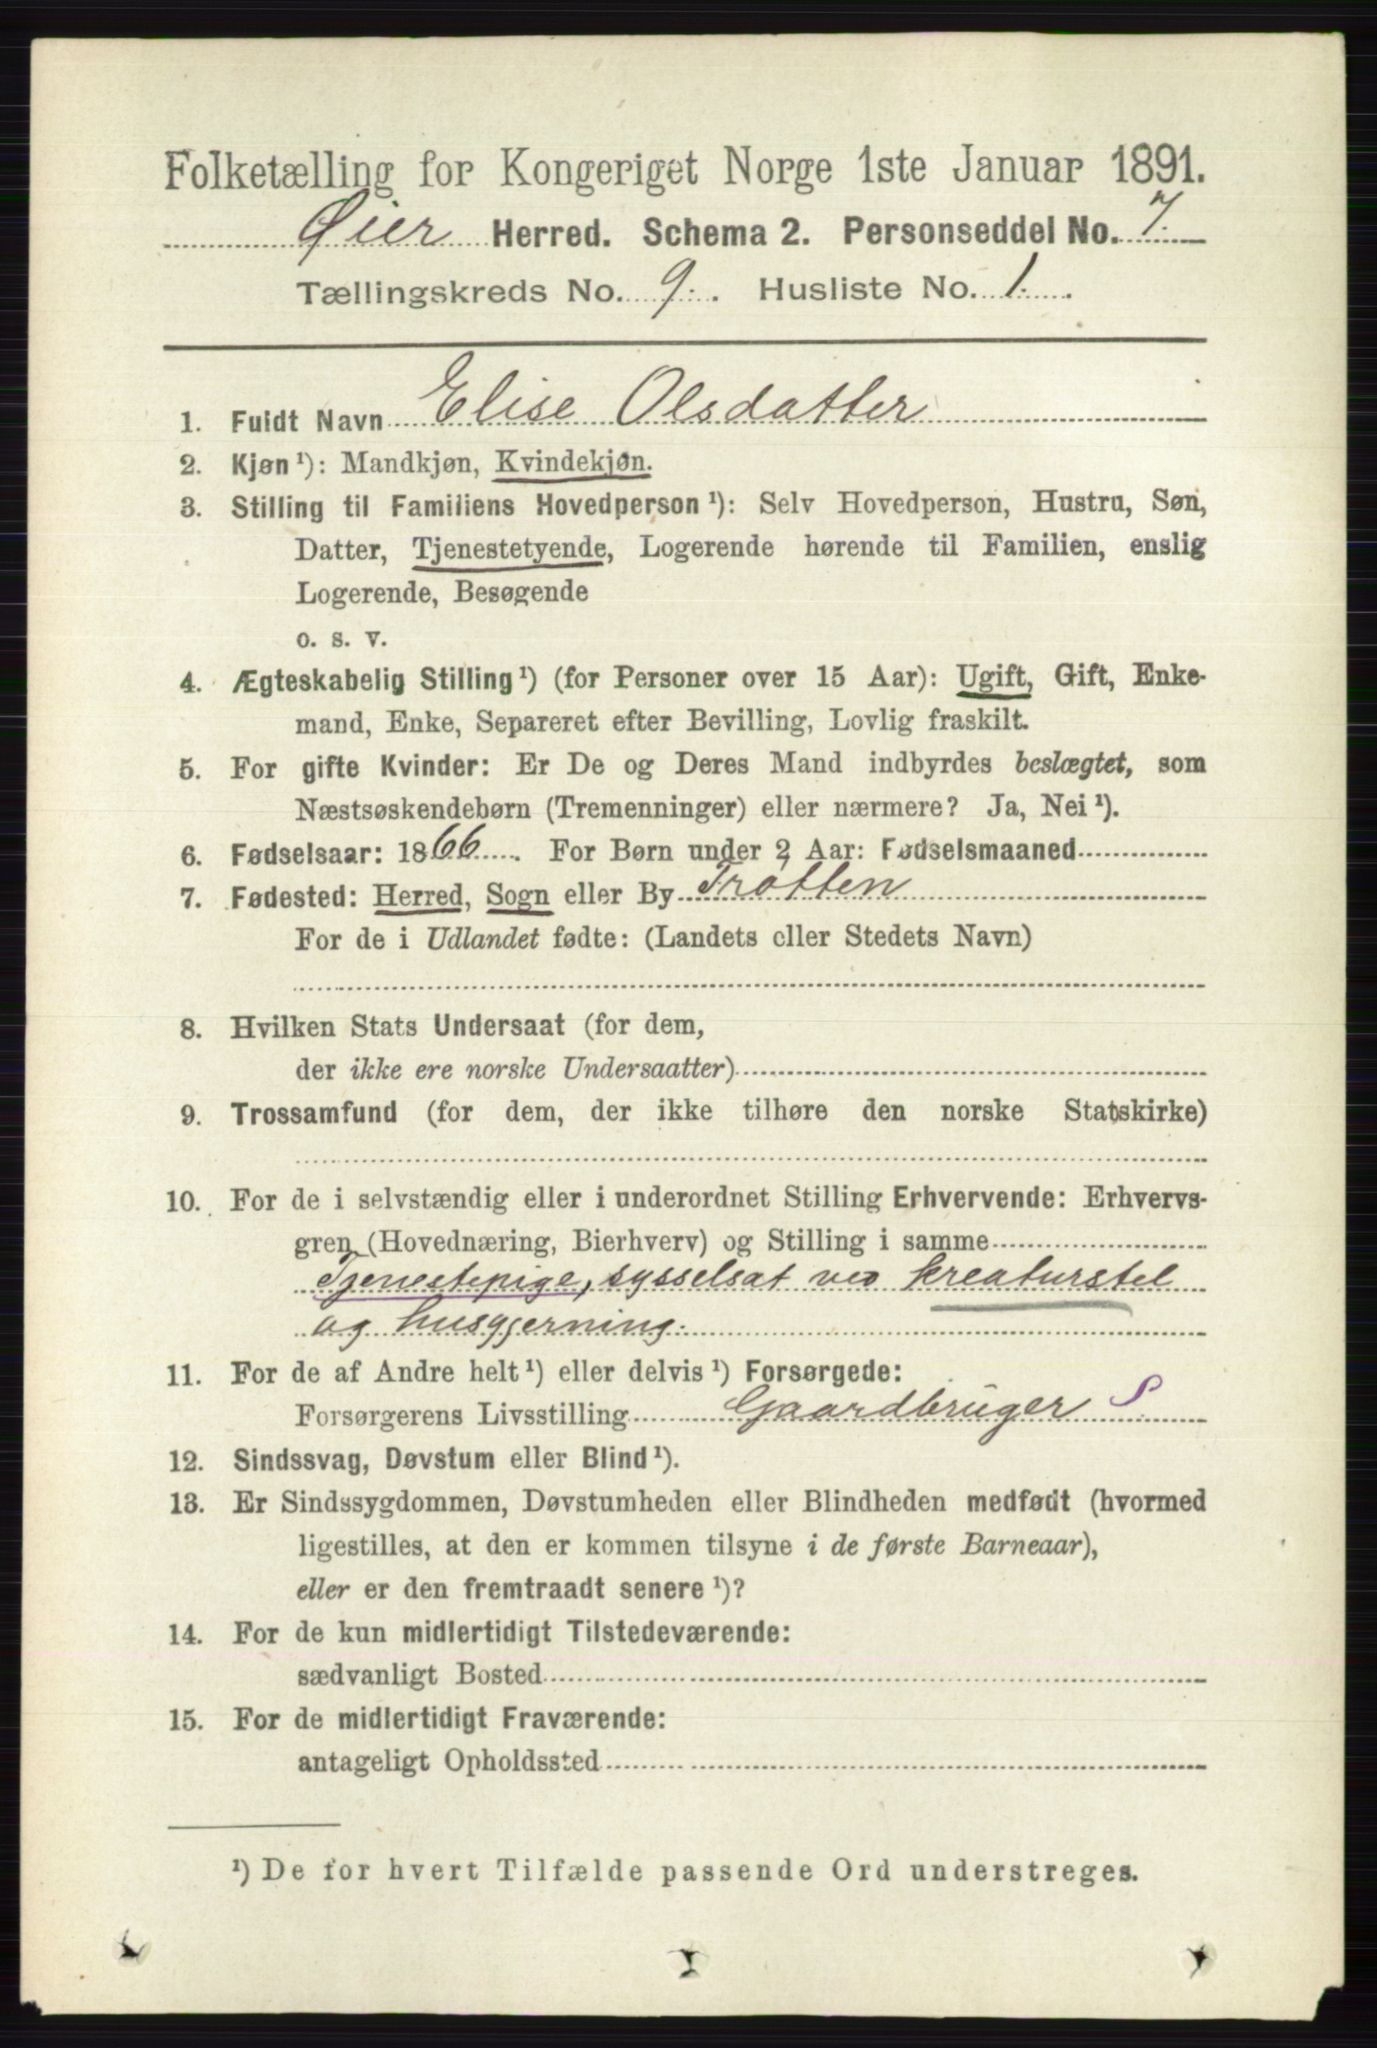 Folketælling for Kongeriget Norge 1ste Januar 1891.
Øier Herred. Schema 2. Personseddel No. 7.
Tællingskreds No. 9. Husliste No. 1.
1. Fuldt Navn Elise Olsdatter
2. Kjøn ¹): Mandkjøn, Kvindekjøn.
3. Stilling til Familiens Hovedperson ¹): Selv Hovedperson, Hustru, Søn,
Datter, Tjenestetyende, Logerende hørende til Familien, enslig
Logerende, Besøgende
o. s. v.
4. Ægteskabelig Stilling ¹) (for Personer over 15 Aar): Ugift, Gift, Enke-
mand, Enke, Separeret efter Bevilling, Lovlig fraskilt.
5. For gifte Kvinder: Er De og Deres Mand indbyrdes beslægtet, som
Næstsøskendebørn (Tremenninger) eller nærmere? Ja, Nei ¹).
6. Fødselsaar: 1866. For Børn under 2 Aar: Fødselsmaaned
7. Fødested: Herred, Sogn eller By Trøtten
For de i Udlandet fødte: (Landets eller Stedets Navn)
8. Hvilken Stats Undersaat (for dem,
der ikke ere norske Undersaatter)
9. Trossamfund (for dem, der ikke tilhøre den norske Statskirke)
10. For de i selvstændig eller i underordnet Stilling Erhvervende: Erhvervs-
gren (Hovednæring, Bierhverv) og Stilling i samme
Tjenestepige, sysselsat ved kreaturstel
og husgjerning.
11. For de af Andre helt ¹) eller delvis ¹) Forsørgede:
Forsørgerens Livsstilling Gaardbruger S
12. Sindssvag, Døvstum eller Blind ¹).
13. Er Sindssygdommen, Døvstumheden eller Blindheden medfødt (hvormed
ligestilles, at den er kommen tilsyne i de første Barneaar),
eller er den fremtraadt senere ¹)?
14. For de kun midlertidigt Tilstedeværende:
sædvanligt Bosted
15. For de midlertidigt Fraværende:
antageligt Opholdssted
¹) De for hvert Tilfælde passende Ord understreges.